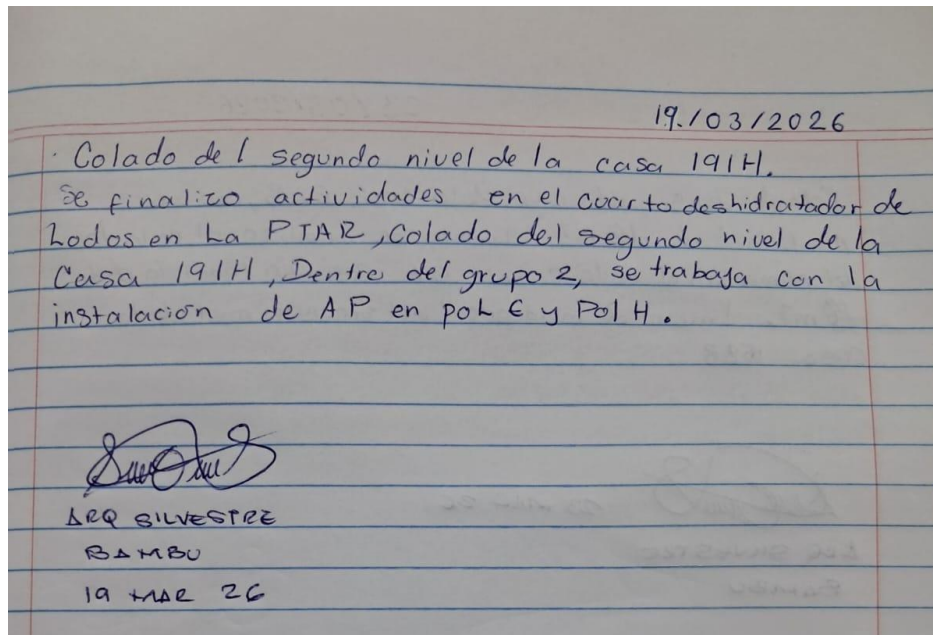 19/03/2026
· Colado del segundo nivel de la casa 191H.
se finalizo actividades en el cuarto deshidratador de
Lodos en La PTAR, Colado del segundo nivel de la
Casa 191H, Dentro del grupo 2, se trabaja con la
instalación de AP en pol E y Pol H.
ARQ SILVESTRE
BAMBU
19 MAR 26